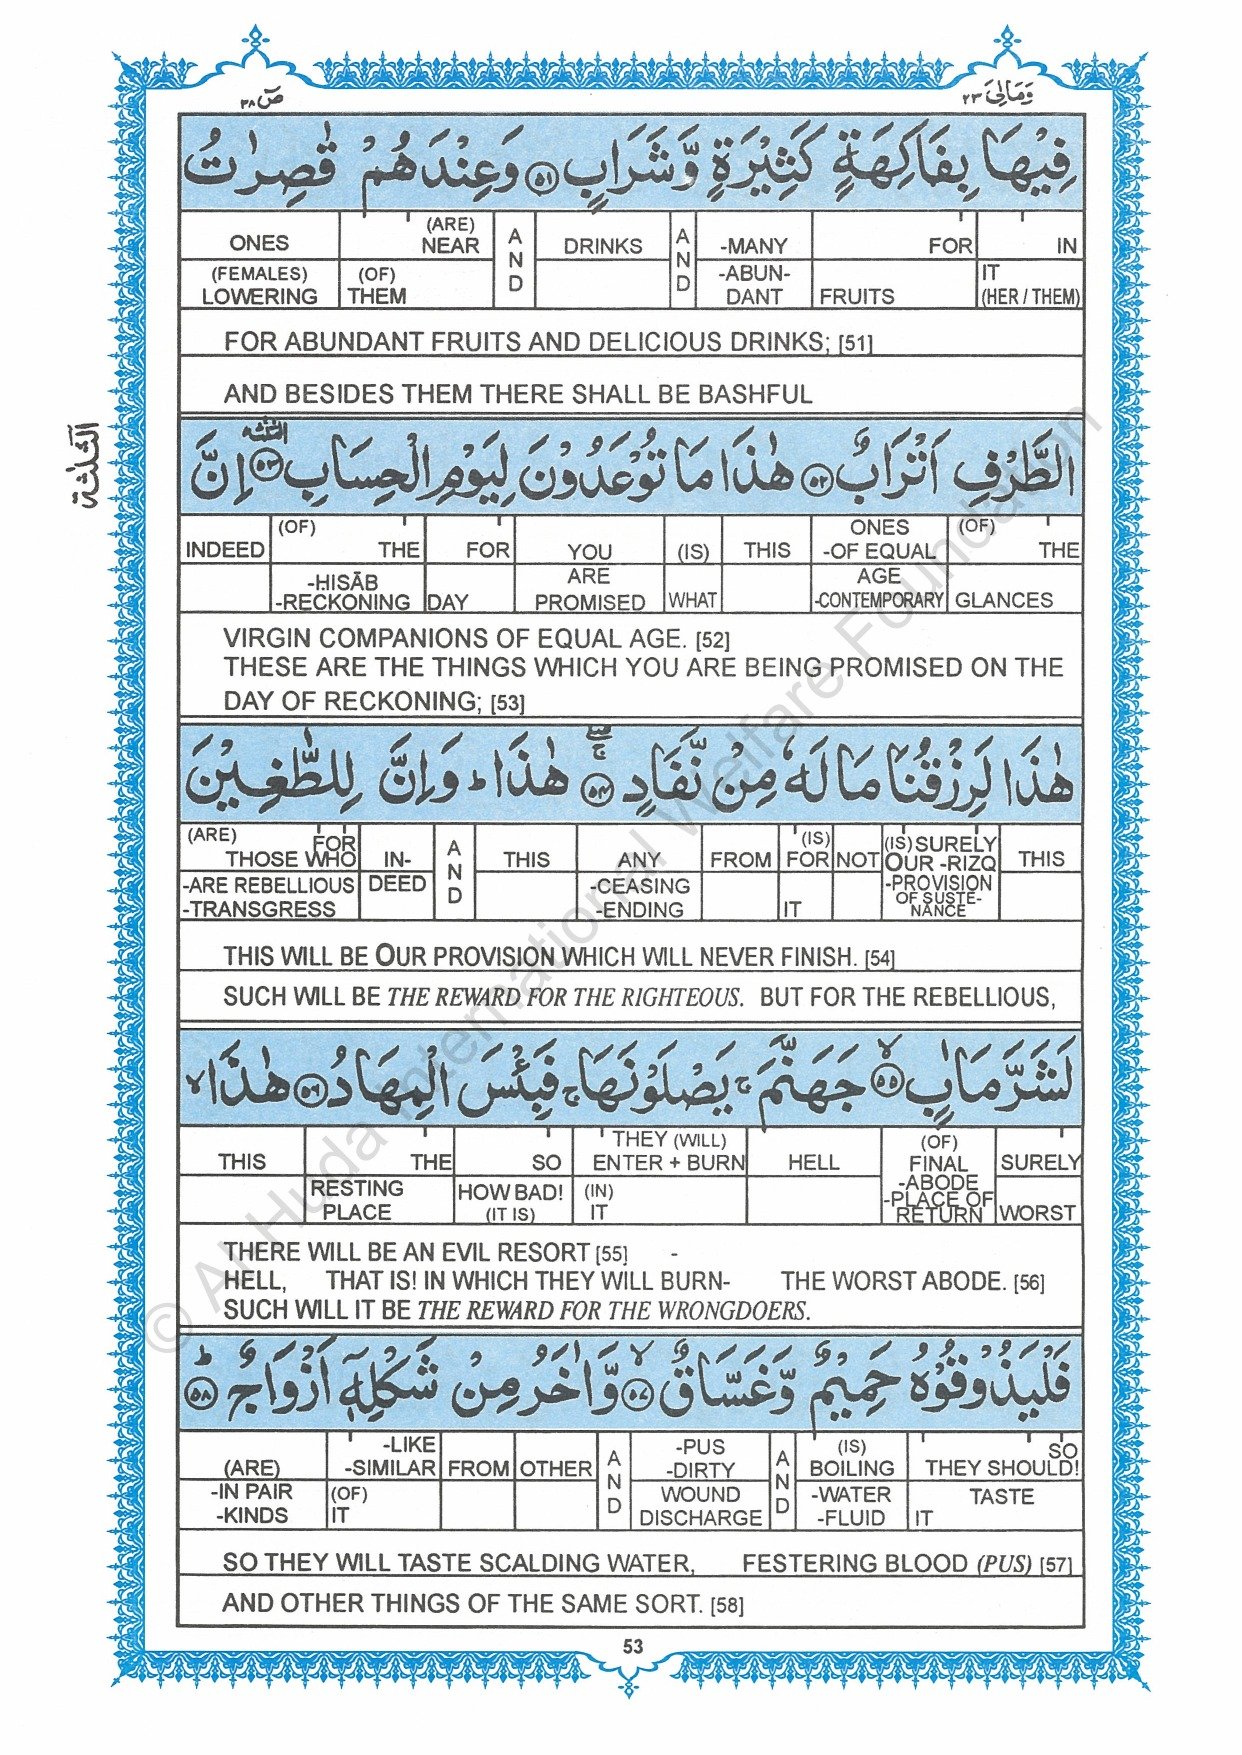 ص ٣٨
وَمَالِیَ ٢٣
فِيْهَا بِفَاكِهَةٍ كَثِيْرَةٍ وَّشَرَابٍ ﴿٥١﴾ وَعِنْدَهُمْ قٰصِرٰتُ
ONES (ARE) NEAR AND DRINKS AND -MANY FOR IN
(FEMALES) LOWERING (OF) THEM -ABUN-DANT FRUITS IT (HER / THEM)
FOR ABUNDANT FRUITS AND DELICIOUS DRINKS; [51]
AND BESIDES THEM THERE SHALL BE BASHFUL
الثلثة
الطَّرْفِ اَتْرَابٌ ﴿٥٢﴾ هٰذَا مَا تُوْعَدُوْنَ لِيَوْمِ الْحِسَابِ ﴿٥٣﴾ اِنَّ
INDEED (OF) THE FOR YOU (IS) THIS ONES -OF EQUAL (OF) THE
-HISĀB -RECKONING DAY ARE PROMISED WHAT AGE -CONTEMPORARY GLANCES
VIRGIN COMPANIONS OF EQUAL AGE. [52]
THESE ARE THE THINGS WHICH YOU ARE BEING PROMISED ON THE
DAY OF RECKONING; [53]
هٰذَا لَرِزْقُنَا مَا لَهٗ مِنْ نَّفَادٍ ﴿٥٤﴾ هٰذَا ؕ وَاِنَّ لِلطّٰغِيْنَ
(ARE) FOR THOSE WHO IN- AND THIS ANY FROM (IS) FOR NOT (IS) SURELY OUR -RIZQ THIS
-ARE REBELLIOUS -TRANSGRESS DEED -CEASING -ENDING IT -PROVISION OF SUSTE-NANCE
THIS WILL BE OUR PROVISION WHICH WILL NEVER FINISH. [54]
SUCH WILL BE THE REWARD FOR THE RIGHTEOUS. BUT FOR THE REBELLIOUS,
لَشَرَّ مَاٰبٍ ﴿٥٥﴾ جَهَنَّمَ ۚ يَصْلَوْنَهَا ۚ فَبِئْسَ الْمِهَادُ ﴿٥٦﴾ هٰذَا ۙ
THIS THE SO THEY (WILL) ENTER + BURN HELL (OF) FINAL SURELY
RESTING PLACE HOW BAD! (IT IS) (IN) IT -ABODE -PLACE OF RETURN WORST
THERE WILL BE AN EVIL RESORT [55] -
HELL, THAT IS! IN WHICH THEY WILL BURN- THE WORST ABODE. [56]
SUCH WILL IT BE THE REWARD FOR THE WRONGDOERS.
فَلْيَذُوْقُوْهُ حَمِيْمٌ وَّغَسَّاقٌ ۙ﴿٥٧﴾ وَّاٰخَرُ مِنْ شَكْلِهٖۤ اَزْوَاجٌ ؕ﴿٥٨﴾
(ARE) -LIKE -SIMILAR FROM OTHER AND -PUS -DIRTY AND (IS) BOILING SO THEY SHOULD!
-IN PAIR -KINDS (OF) IT WOUND DISCHARGE -WATER -FLUID TASTE IT
SO THEY WILL TASTE SCALDING WATER, FESTERING BLOOD (PUS) [57]
AND OTHER THINGS OF THE SAME SORT. [58]
53
© Al Huda International Welfare Foundation